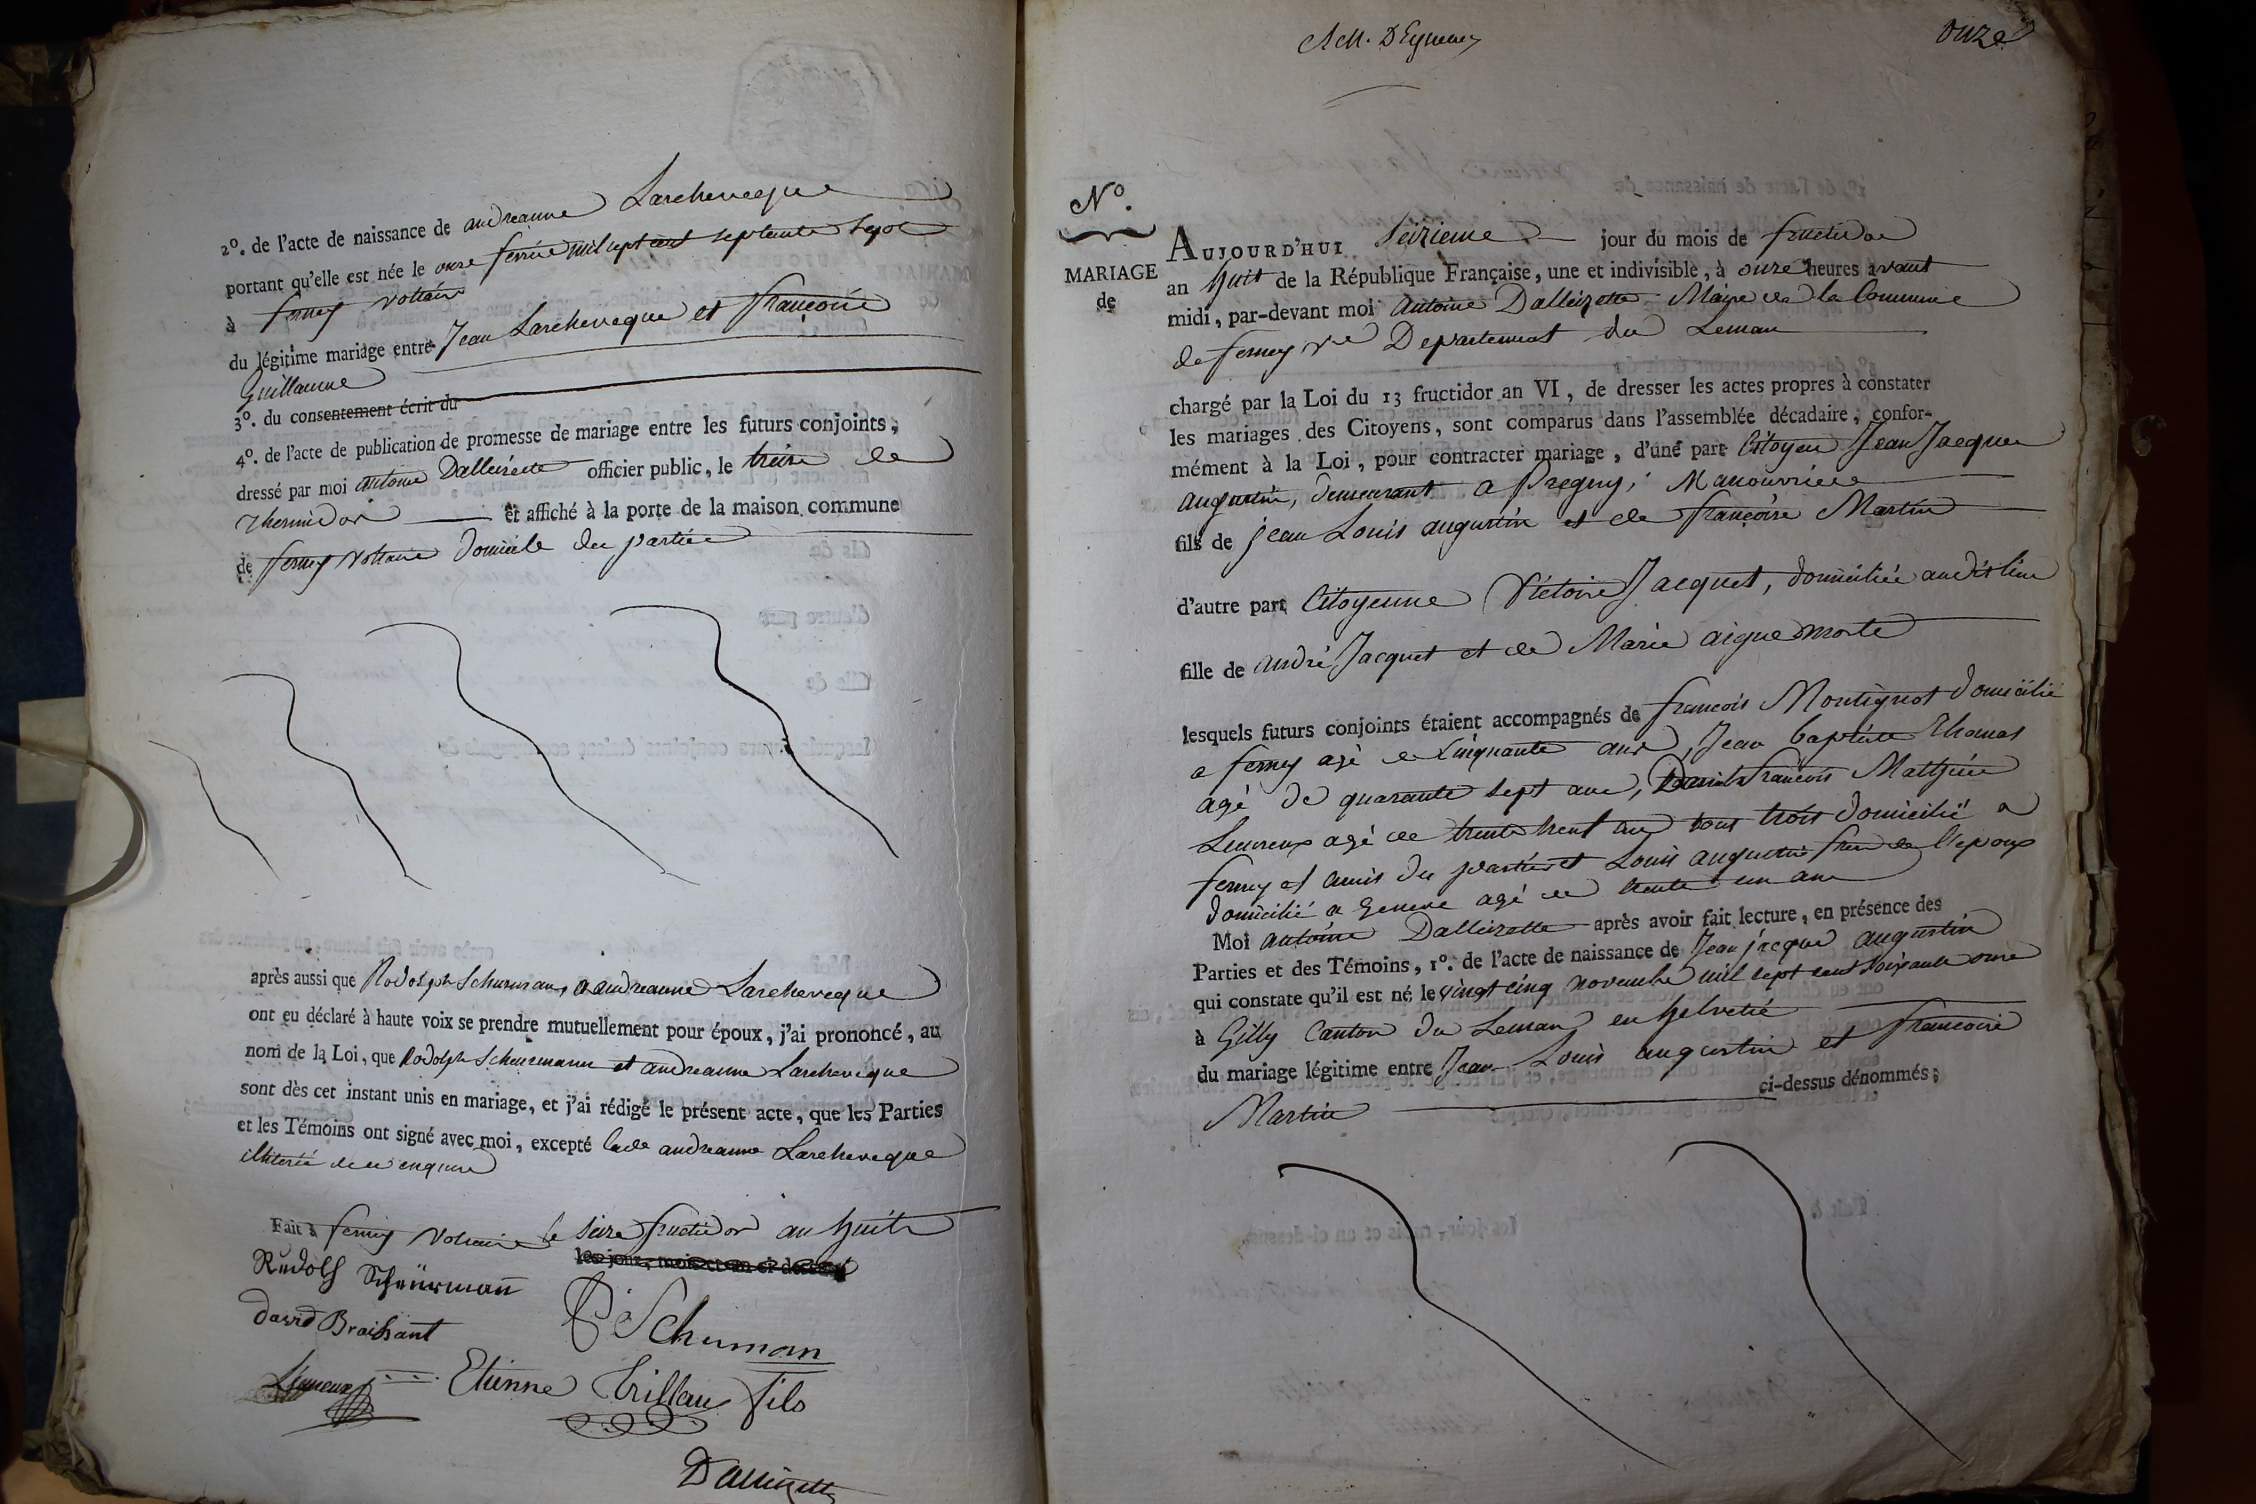 2°. de l'acte de naissance de andreanne Larcheveque
portant qu'elle est née le onze fevrié mil sept cent septente sept
à ferney voltaire
du légitime mariage entre Jean Larcheveque et francoise
Guillaume
3°. du consentement écrit du
4°. de l'acte de publication de promesse de mariage entre les futurs conjoints,
dressé par moi antoine Dalleizette officier public, le treize de
thermidor et affiché à la porte de la maison commune
de ferney voltaire domicile des parties
après aussi que Rodolph Schurman, & andreanne Larcheveque
ont eu déclaré à haute voix se prendre mutuellement pour époux, j'ai prononcé, au
nom de la Loi, que Rodolph Scheurmann et andreanne Larcheveque
sont dès cet instant unis en mariage, et j'ai rédigé le présent acte, que les Parties
et les Témoins ont signé avec moi, excepté lade andreanne Larcheveque
illiterée de ce enquise
Fait à ferney voltaire le seize fructidor an huit
les jour, mois et an ci-dessus
Rudolf Scheürman
Schuman
david Braihant
Limeux Etienne Trillau fils
Dalleizette
onze
N°.
MARIAGE
de
AUJOURD'HUI Seizieme jour du mois de fructidor
an huit de la République Française, une et indivisible, à onze heures avant
midi, par-devant moi Antoine Dalleizette Maire de la Commune
de ferney vre Departement du Leman
chargé par la Loi du 13 fructidor an VI, de dresser les actes propres à constater
les mariages des Citoyens, sont comparus dans l'assemblée décadaire, confor-
mément à la Loi, pour contracter mariage, d'une part Citoyen Jean Jacques
augustin, demeurant a Pregny, Manouvrier
fils de jean Louis augustin et de françoise Martin
d'autre part Citoyenne Victoire Jacquet, domiciliée audit lieu
fille de andré Jacquet et de Marie aiguemorte
lesquels futurs conjoints étaient accompagnés de francois Montignot domicilié
a ferney agé de Cinquante ans, Jean baptiste Thomas
agé de quarante sept ans, francois Mathieu
Limeux agé de trente neuf ans tous trois domicilié a
ferney et amis des parties et Louis augustin frere de l'epoux
domicilié a Geneve agé de trente un ans
Moi antoine Dalleizette après avoir fait lecture, en présence des
Parties et des Témoins, 1°. de l'acte de naissance de Jean jacque augustin
qui constate qu'il est né le vingt cinq novembre mil sept cent soixante onze
à Gilly Canton du Leman en helvetie
du mariage légitime entre Jean Louis augustin et francoise
Martin ci-dessus dénommés;